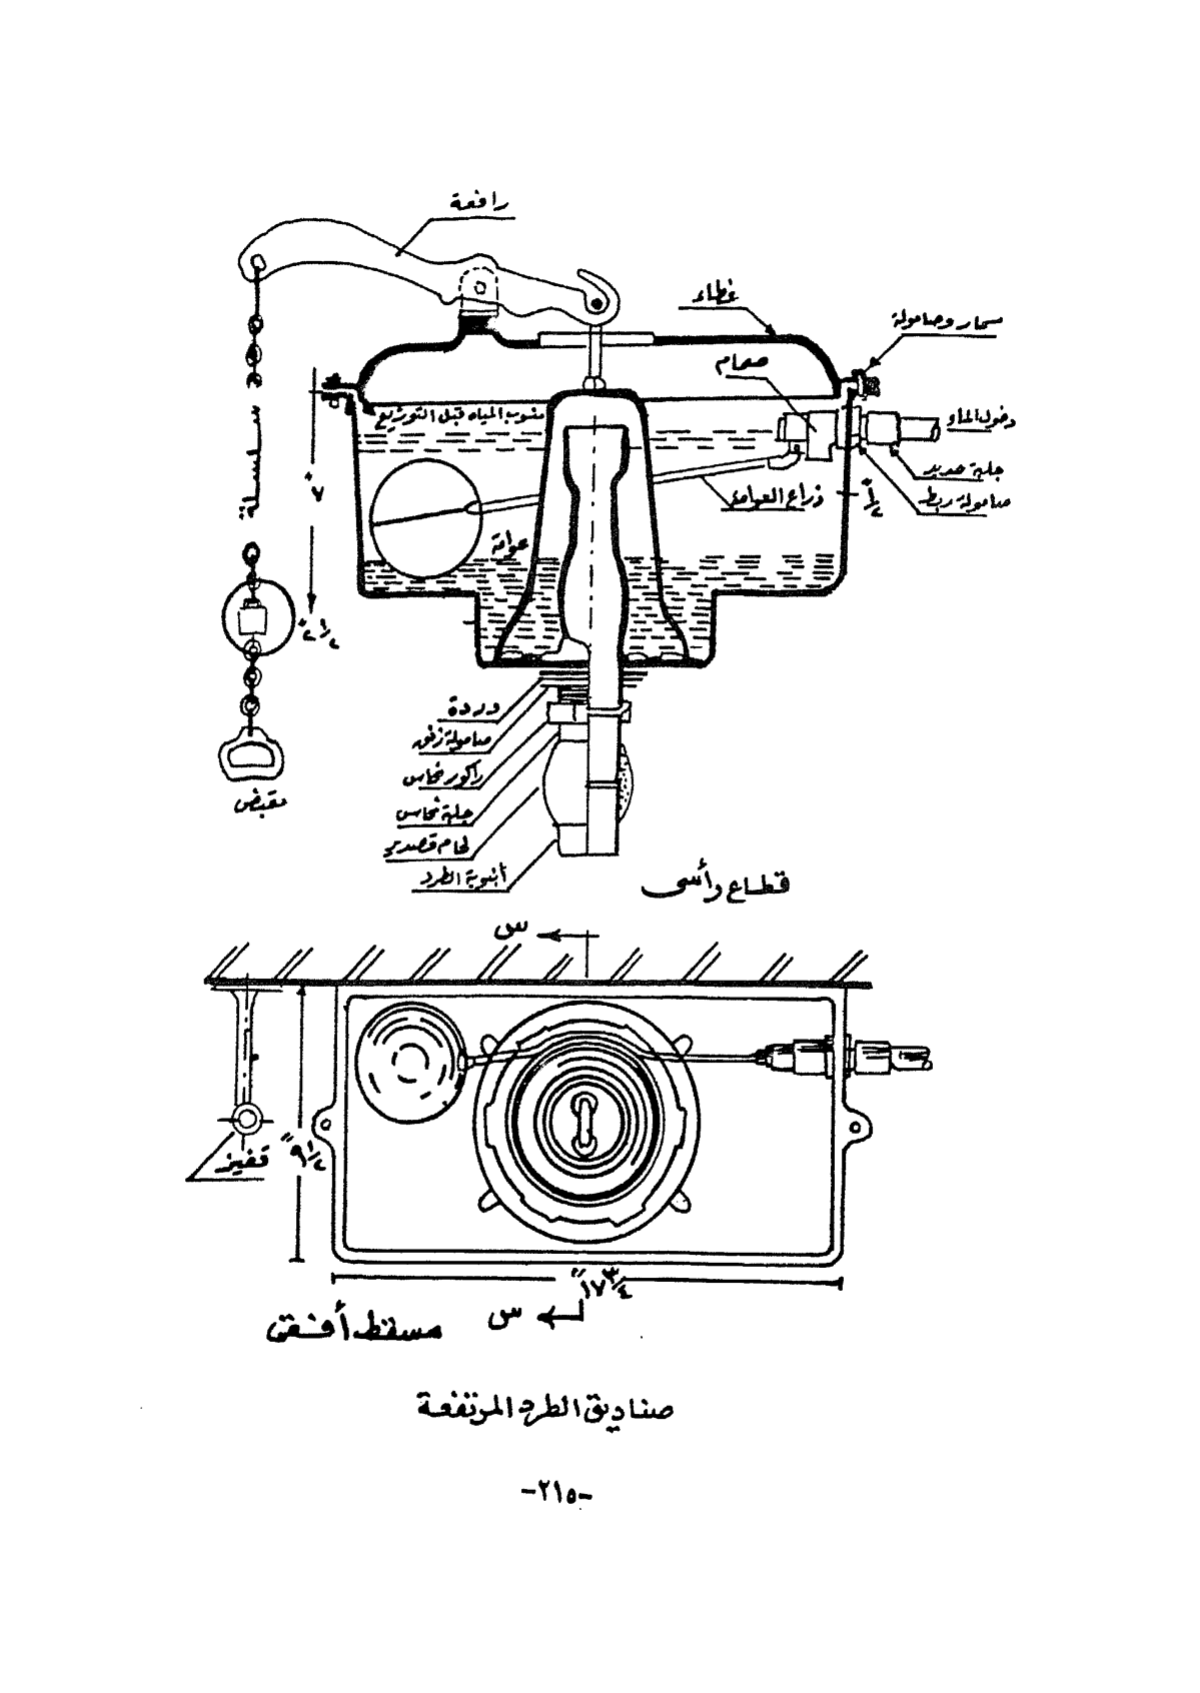 رافعة
غطاء
مسمار وصامولة
صمام
منسوب المياه قبل التوزيع
دخول الماء
جلبة حديد
صامولة ربط
ذراع العوامة
١/٢"
سلسلة
٧"
عوامة
٢ ١/٢"
وردة
صامولة زنق
راكور نحاس
جلبة نحاس
لحام قصدير
أنبوبة الطرد
مقبض
قطاع رأسى
س
قفيز
٩ ١/٢"
١٧ ٣/٤"
س
مسقط أفقى
صناديق الطرد المرتفعة
-٢١٥-